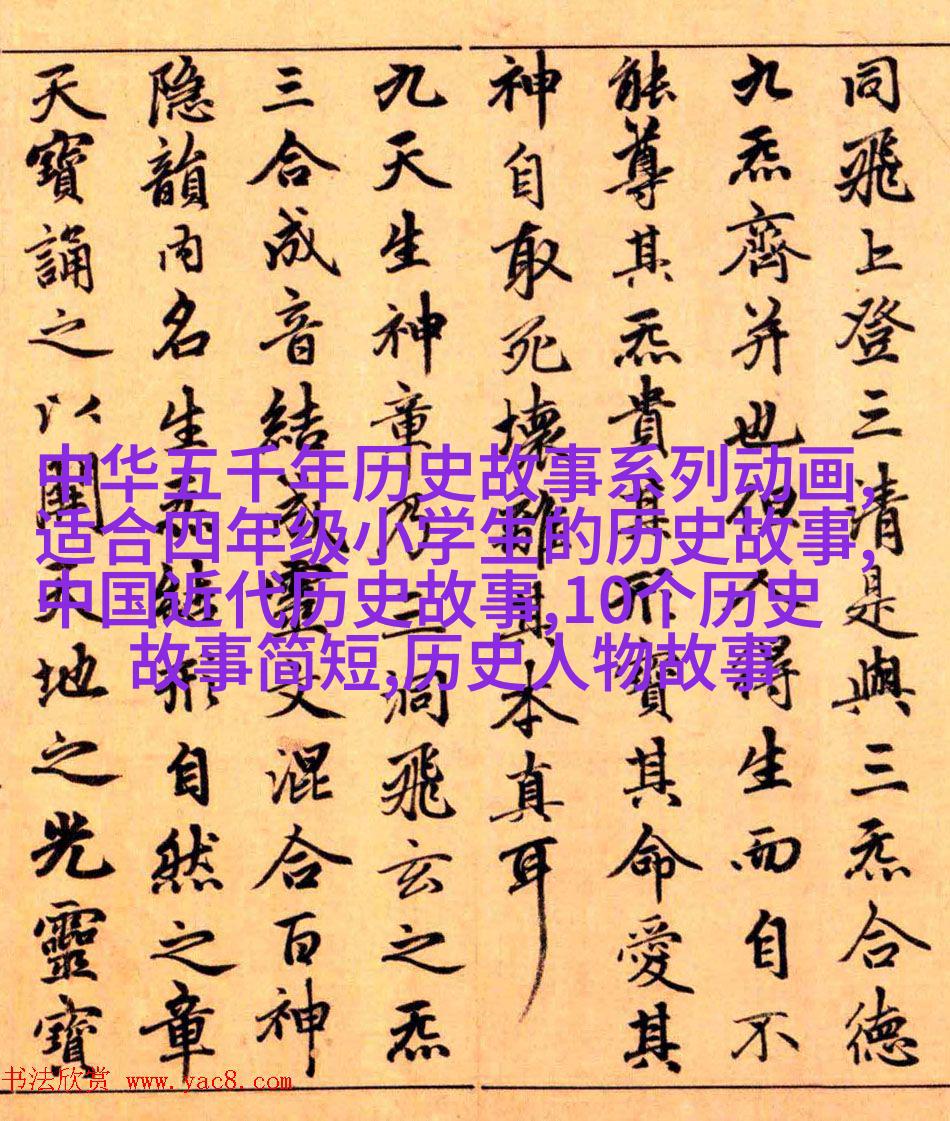 同飛上登三清是與三炁合德
九炁齊并也但人得生而自不
能尊其炁貴其形寶其命愛其
神自取死壞離其本真耳
九天生神章乃三洞飛玄之炁
三合成音結成靈文混合百神
隱韻內名生炁結形自然之章
天寶誦之以開天地之光靈寶
中华五千年历史故事系列动画,
适合四年级小学生的历史故事,
中国近代历史故事,10个历史
故事简短,历史人物故事
书法欣赏 www.yac8.com